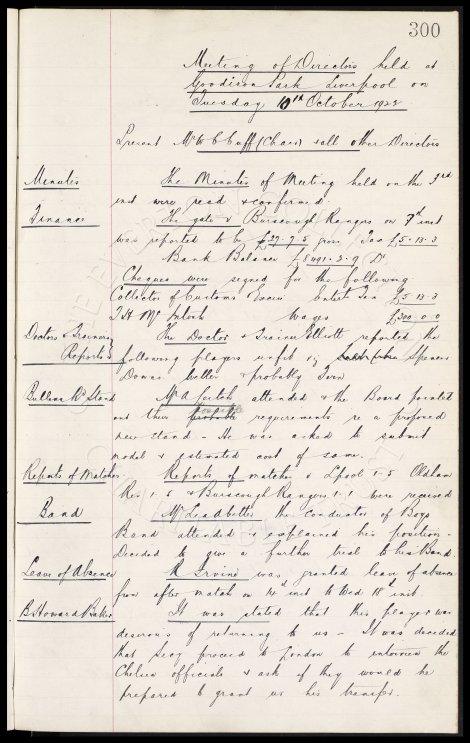 300
Meeting of Directors held at
Goodison Park Liverpool on
Tuesday 10th October 1922
Present Mr W C Cuff (Chair) & all other Directors
Minutes
The Minutes of Meeting held on the 3rd
inst were read & confirmed.
Finance
The gate v Burscough Rangers on 7th inst
was reported to be £39. 7. 5 gross, Tax £5. 13. 3
Bank Balance £8491. 3. 9 Dr
Cheques were signed for the following
Collector of Customs & Excise Entert Tax £5 13 3
T H McIntosh Wages £300. 0. 0
Doctors & Trainers Reports
The Doctor & Trainer Elliott reported the
following players unfit viz Spencer
Downs better & probably Irvine
Bullens Rd Stand
Mr A Leitch attended & the Board pointed
out their requirements re a proposed
new stand - He was asked to submit
model & estimated cost of same.
Reports of Matches
Reports of matches v Lpool 1-5 Oldham
Res 1. & Burscough Rangers 1-1 were received
Band
Mr Leadbetter the conductor of Boys
Band attended & explained his position -
Decided to give a further trial to his Band.
Leave of Absence
R Irvine was granted leave of absence
from after match on 14th inst to Wed 18th inst
B Howard Baker
It was stated that this player was
desirous of returning to us - It was decided
that Secy proceed to London to interview the
Chelsea officials & ask if they would be
prepared to grant us his transfer.